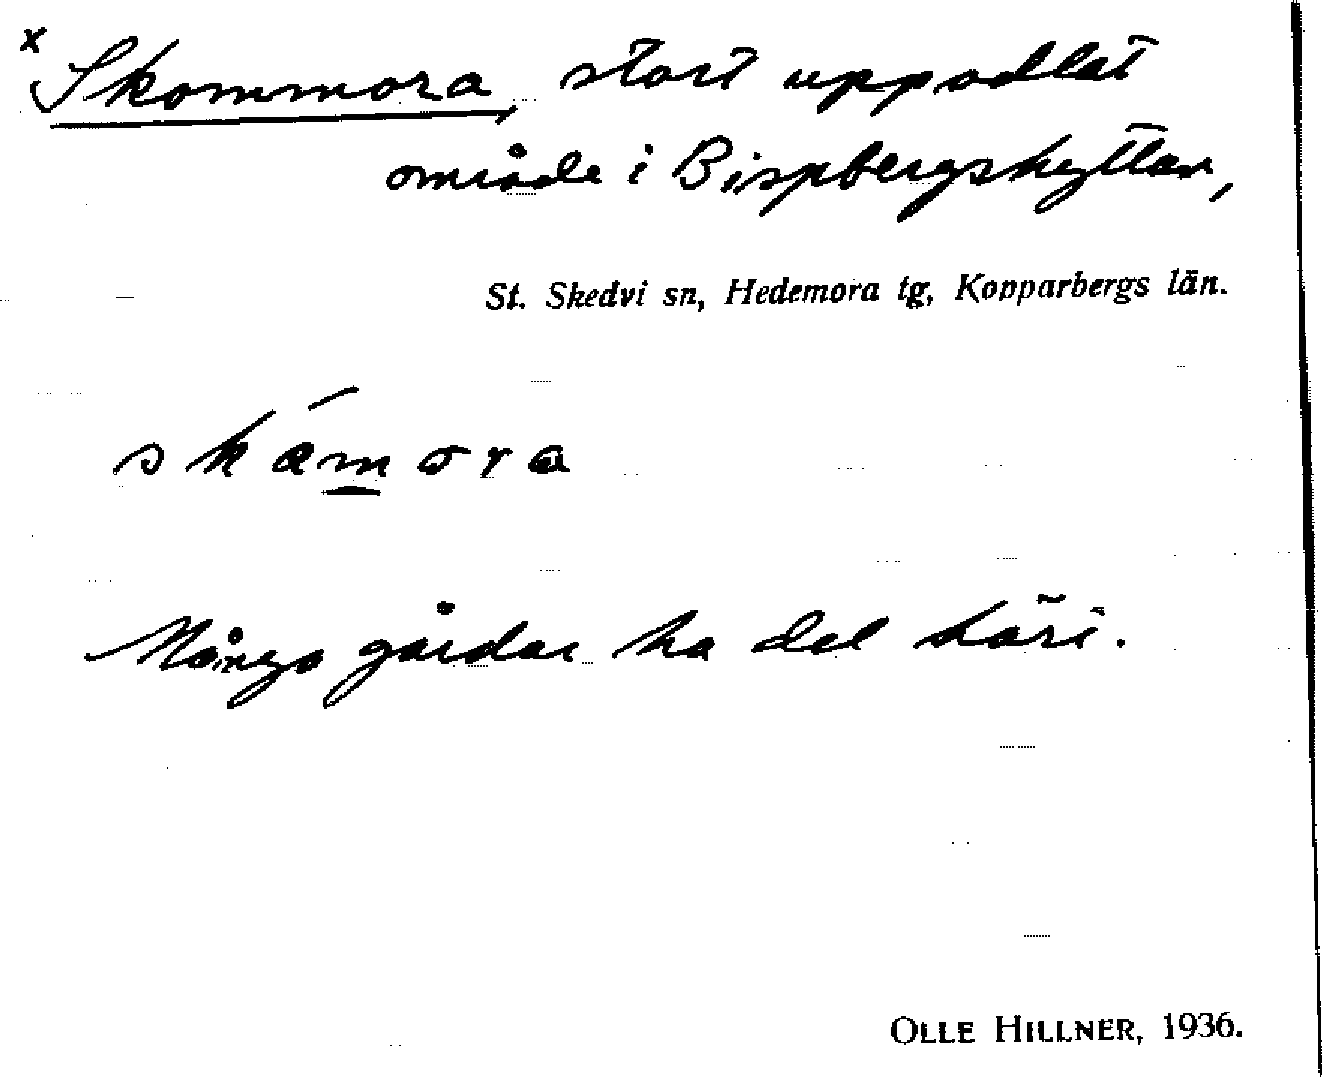 x Skommora, stort uppodlat
område i Bispbergshyttan,
St. Skedvi sn, Hedemora tg, Kopparbergs län.
skámora
Många gårdar ha del häri.
OLLE HILLNER, 1936.